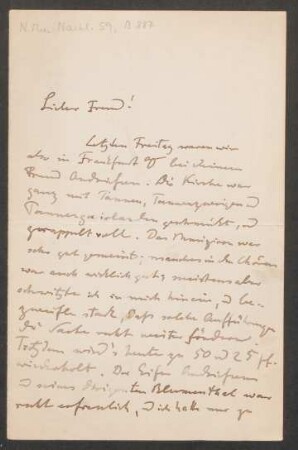 Lieber Freund!
Letzten Freitag waren wir
also in Frankfurt bei Deinem
Freund Andriessen. Die Kirche war
ganz mit Tannen, Tannenzweigen und
geschmückt, und
gerappelt voll. Das Musizieren war
sehr gut gemeint; manches in den Chören
war auch wirklich gut; meistens aber
schwitzte ich so in mich hinein, u be-
zweifle stark, dass solche Aufführungen
die Sache recht weiter fördern.
Trotzdem wird's heute zu 50 und 25 Pf.
wiederholt. Der Eifer Andriessens
und seines Dirigenten Blumenthal war
recht erfreulich, und ich habe nur zu